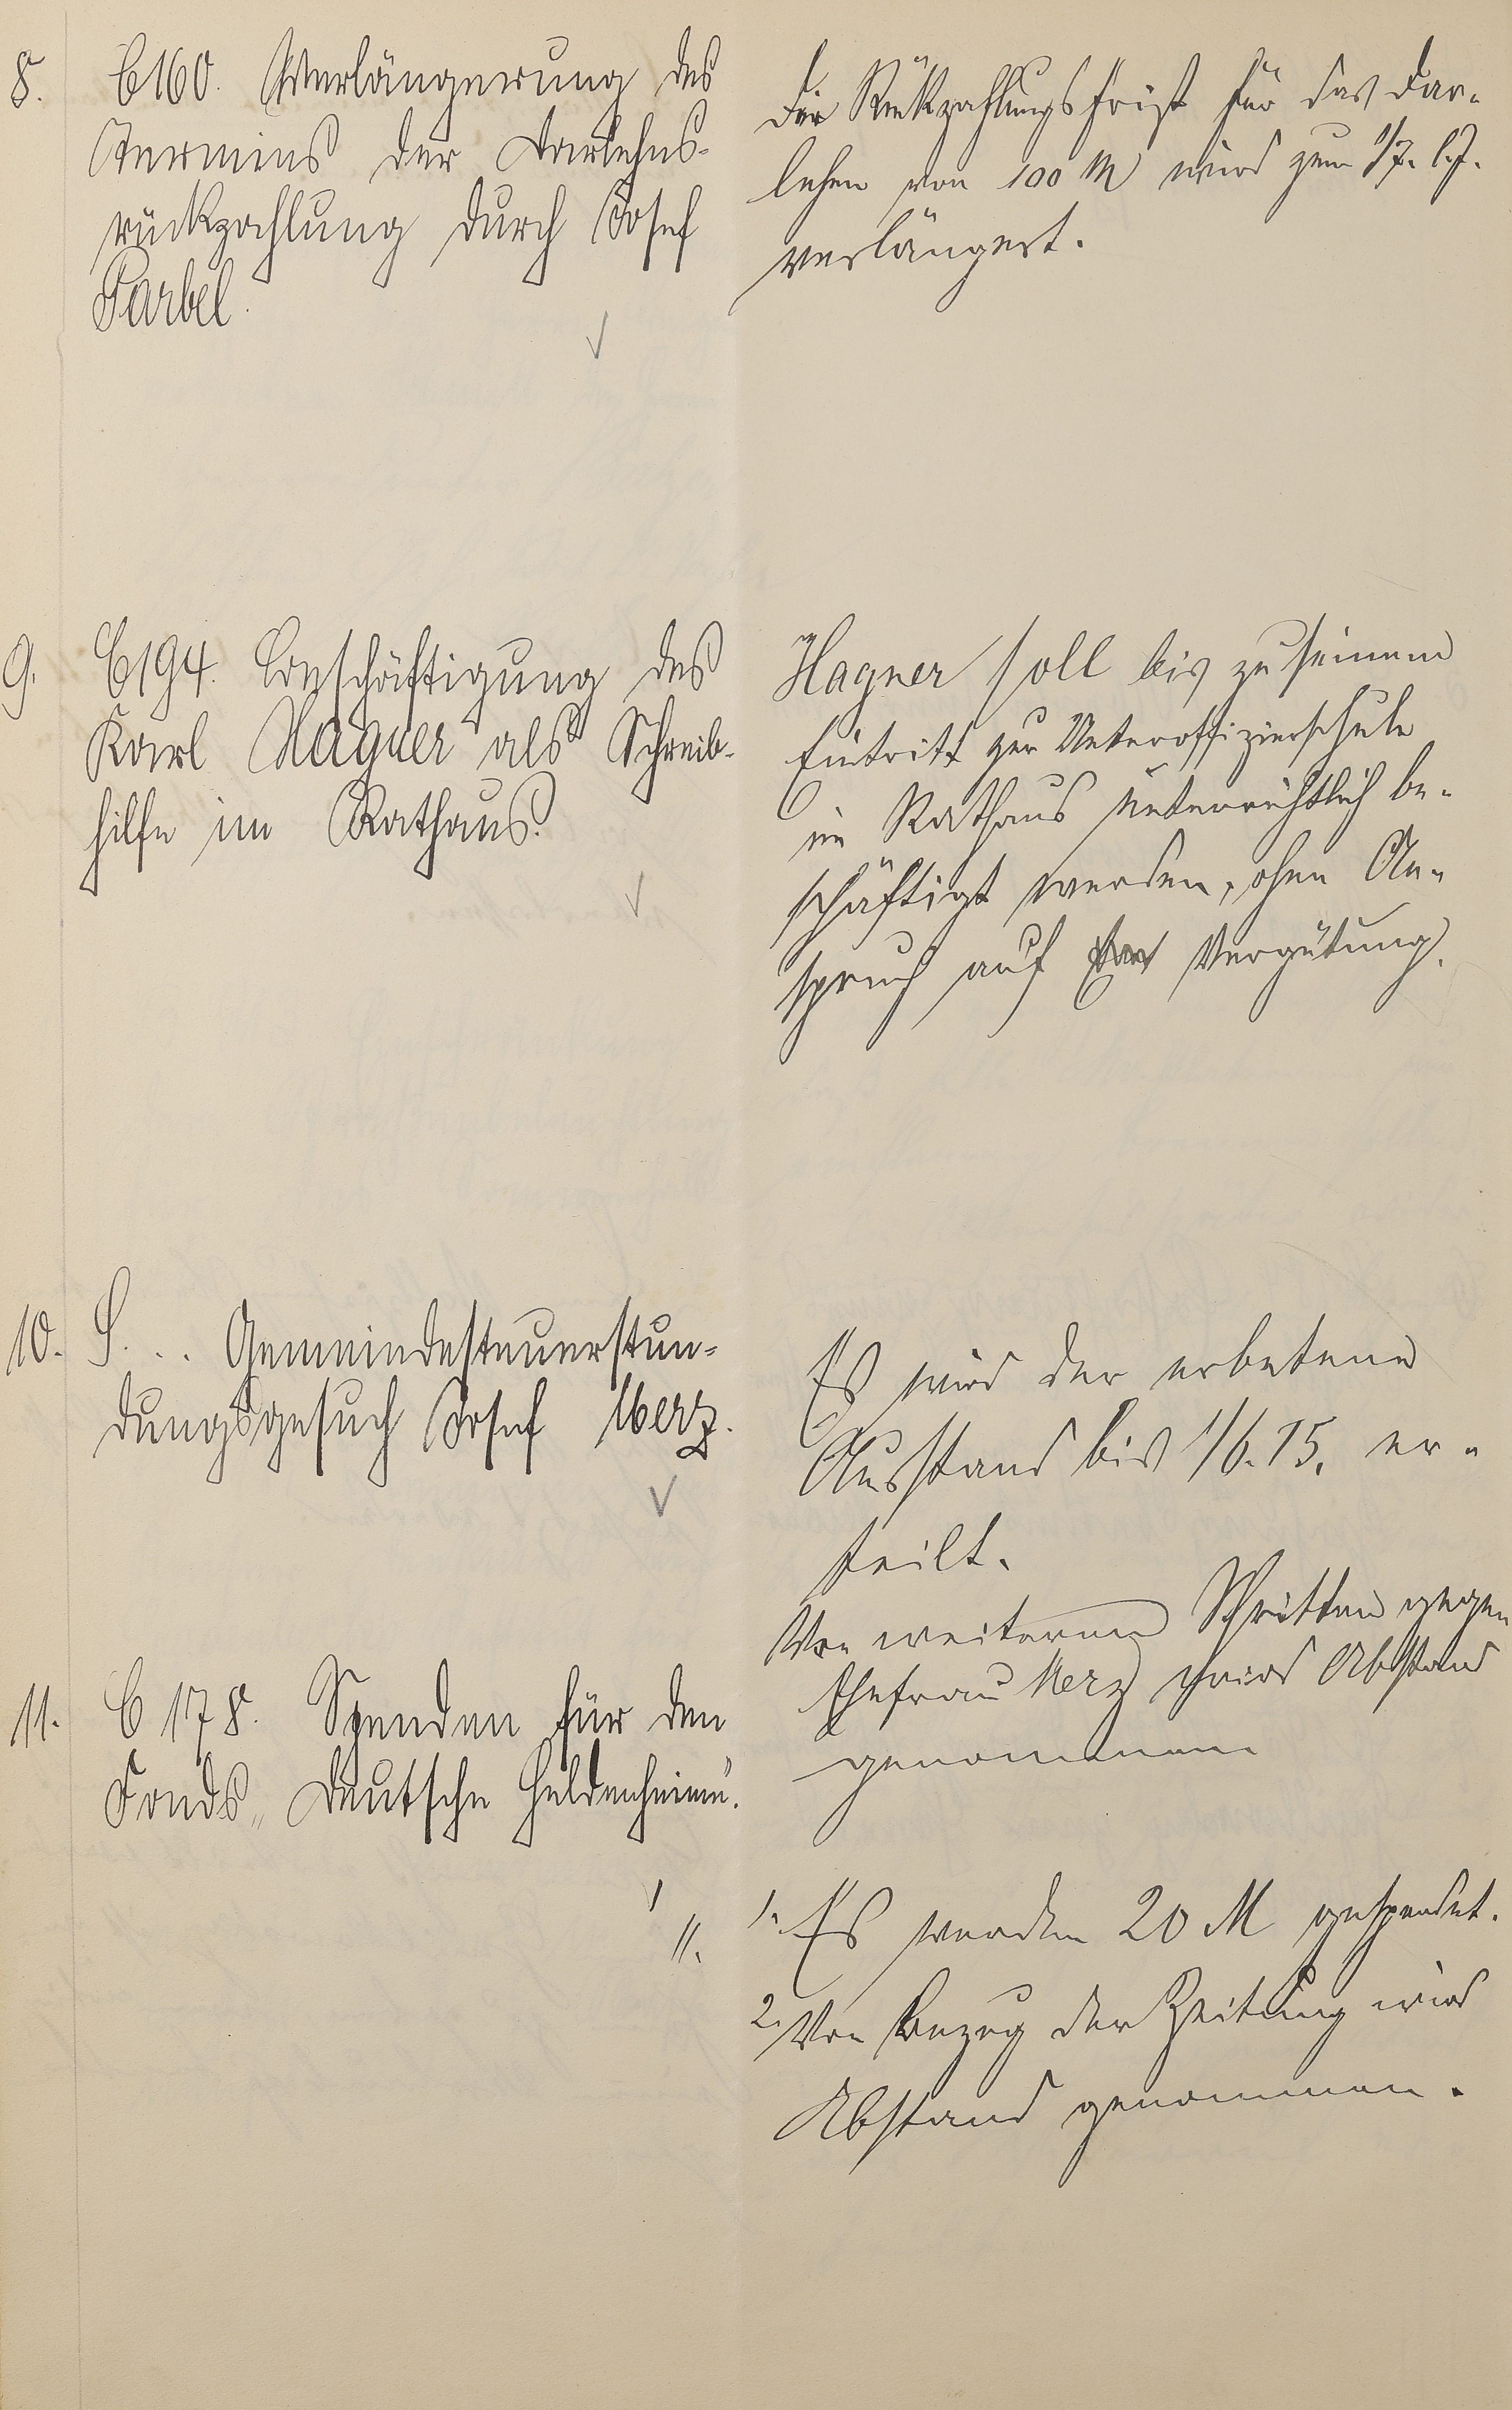 8. C160. Verlängerung des
Termins der Darlehns-
rückzahlung durch Josef
Farbel.
Die Rückzahlungsfrist für das Dar-
lehen von 100 M wird zum 1/7. l. J.
verlängert.
9. C194. Beschäftigung des
Karl Hagner als Schreib-
hilfe im Rathaus.
Hagner soll bis zu seinem
Eintritt zur Unteroffizierschule
im Rathaus unterrichtlich be-
schäftigt werden, ohne An-
spruch auf Vergütung.
10. S. .. Gemeindesteuerstun-
dungsgesuch Josef Merz.
Es wird der erbetene
Ausstand bis 1/6. 15. er-
teilt.
Von weiteren Schritten gegen
Ehefrau Merz wird Abstand
genommen
11. C 178. Spenden für den
Fonds „Deutsche Heldenheime".
1. Es werden 20 M gespendet.
2. Von Bezug der Zeitung wird
Abstand genommen.